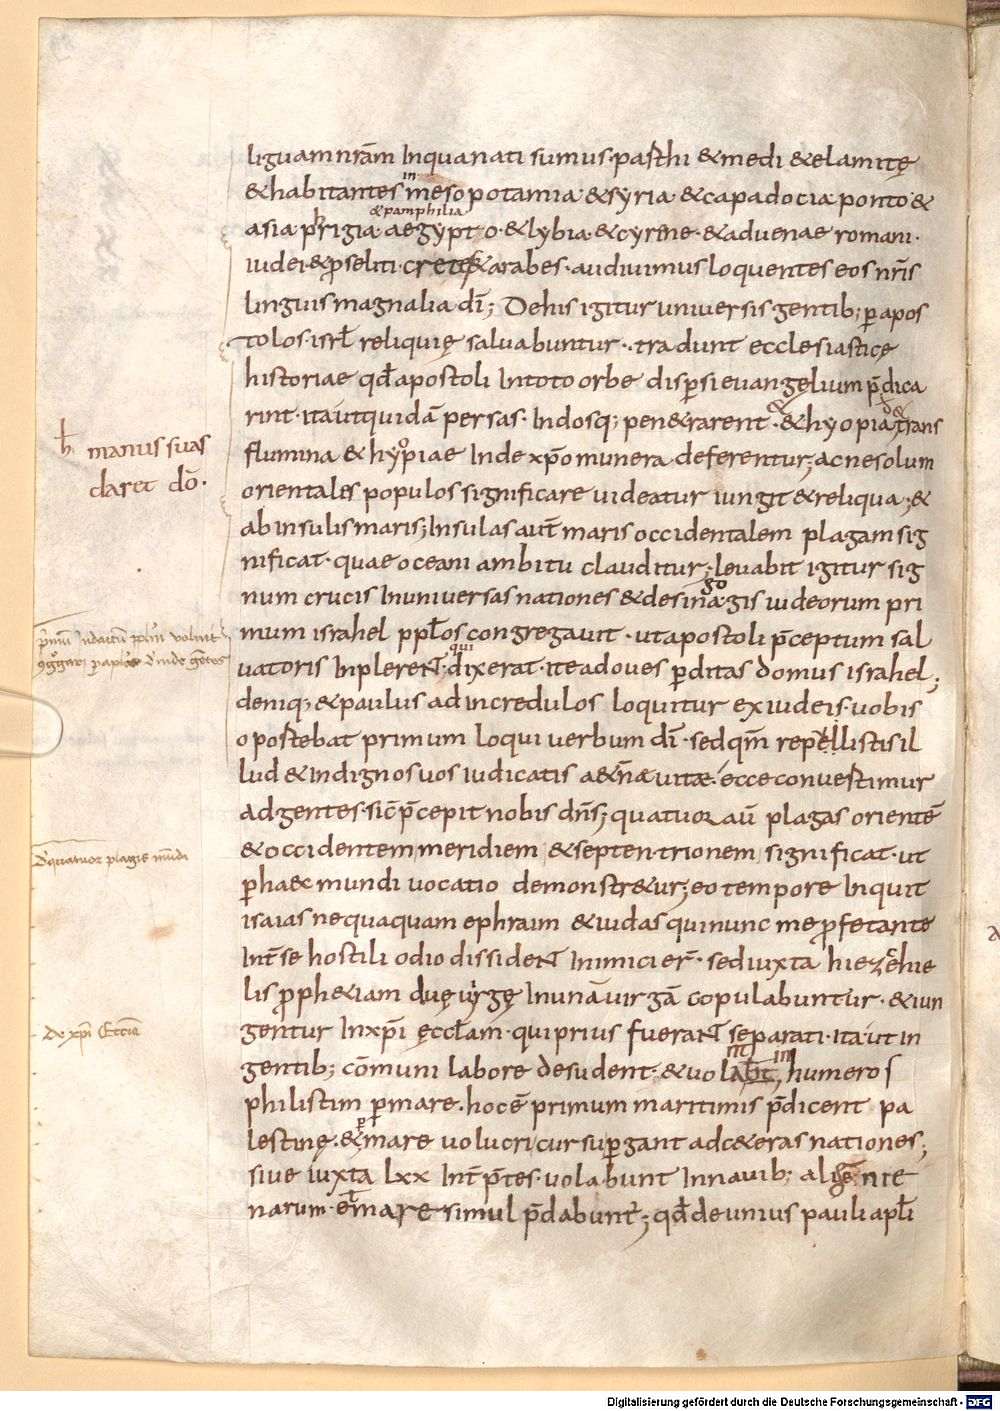 liguam nr̄am In qua nati sumus· pasthi & medi & elamitę
& habitantes in mesopotamia· & syria· & capadocia ponto· &
& pamphilia
asia prigia· aegypto· & lybia· & cyrene· & aduenae romani·
iudei· & pseliti· cretes & arabes· audiuimus loquentes eos nr̄is
linguis magnalia dī; De his igitur uniuersis gentib; p apos
tolos· isrl̄ reliquię saluabuntur·· tradunt ecclesiasticę
historiae qd̄ apostoli In toto orbe dispersi euangelium p̄dica
rint· ita ut quidā persas· Indosq; pen&rarent· & hyopia trans
flumina & hyopiae Inde xp̄o munera deferentur; ac ne solum
h̄ manus suas
daret dō·
orientales populos significare uideatur iungit & reliqua·; &
ab insulis maris; Insulas aut̄ maris occidentalem plagam sig
nificat· quae oceani ambitu clauditur; leuabit igitur sig
num crucis In uniuersas nationes & de sinagogis iudeorum pri
mum israhel ppl̄os congregauit· ut apostoli p̄ceptum sal
uatoris InplereNt· qui dixerat· ite ad oues pditas domus israhel;
deniq; & paulus ad incredulos loquitur ex iudeis· uobis
opostebat primum loqui uerbum dī· sed qm̄ repellistis il
lud & Indignos uos iudicatis a&n̄ae uitae· ecce conuestimur
ad gentes· sic p̄cepit nobis dn̄s; quatuor aū plagas orientē
& occidentem meridiem & septentrionem significat· ut
D quatuor plagis mūdi
p haec mundi uocatio demonstr&ur; eo tempore Inquit
isaias nequaquam ephraim & iudas qui nunc me pfetante
Int̄ se hostili odio dissideNt Inimici er̄· sed iuxta hiezechie
lis pph&iam duę uirgę In unā uirgā copulabuntur· & iun
gentur In xp̄i ęccl̄am· qui prius fueraNt separati· ita· ut in
De xp̄i Eccīa
gentib; cōmuni labore desudent· & uolabt in humeros
philistim p mare· hoc ē primum maritimis p̄dicent pa
lestinę· & p mare uolucri cursu pgant ad c&eras nationes;
siue iuxta lxx Int̄p̄tes· uolabunt In nauib; alienige
narum· & mare simul p̄dabunt; qd̄ de unius pauli apl̄i
Digitalisierung gefördert durch die Deutsche Forschungsgemeinschaft - DFG